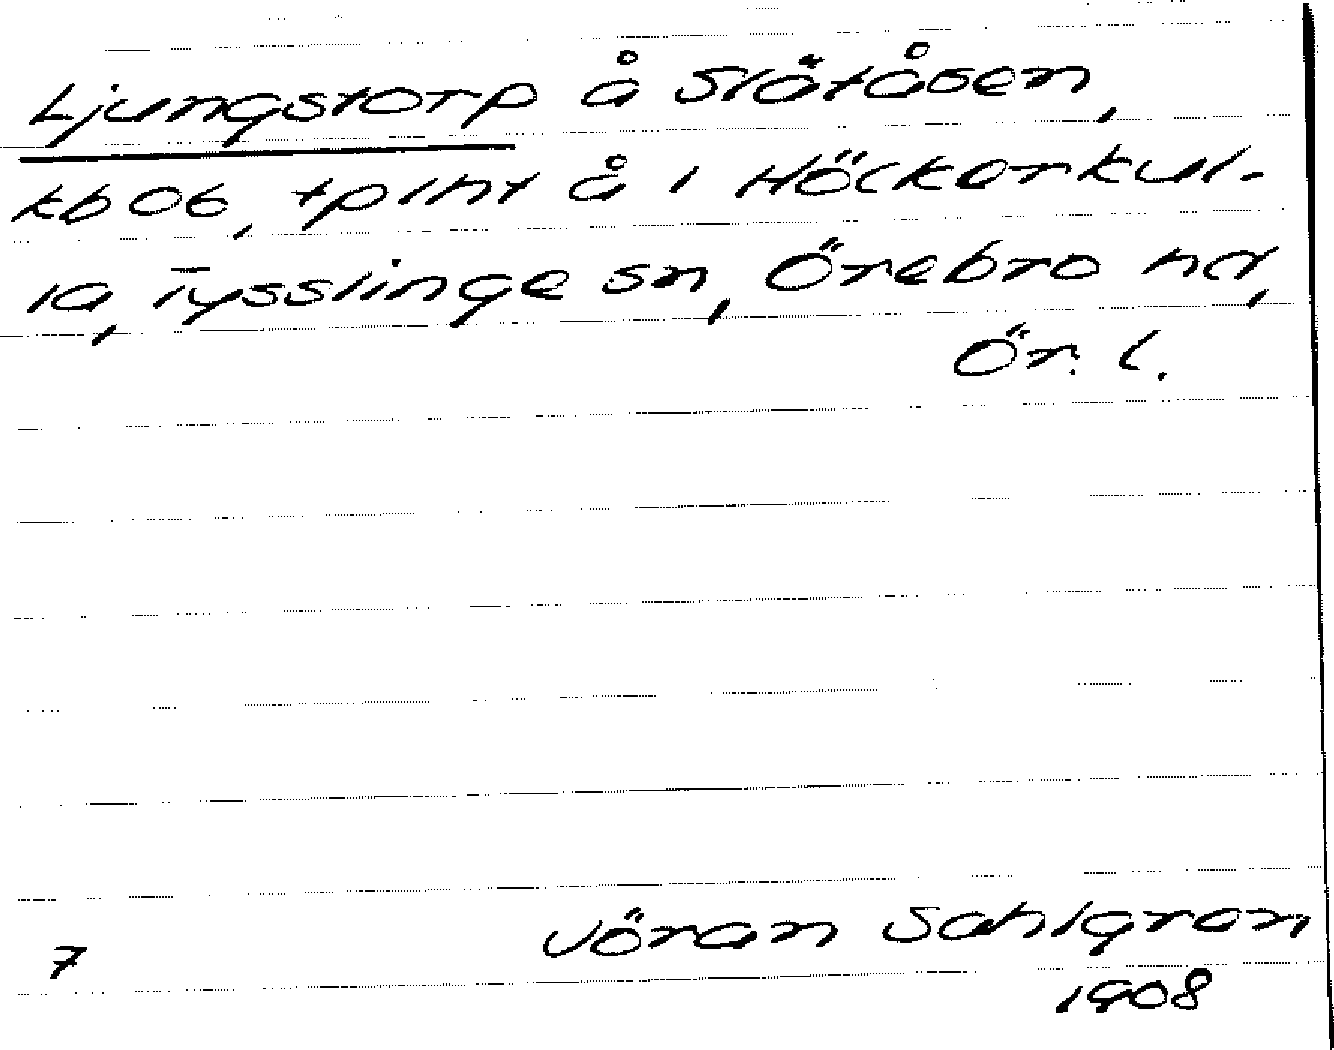 Ljungstorp å Slätåsen,
kb 06, tplht å i Höckerkul-
la, Tysslinge sn, Örebro hd,
Ör. l.
7
Jöran Sahlgren
1908